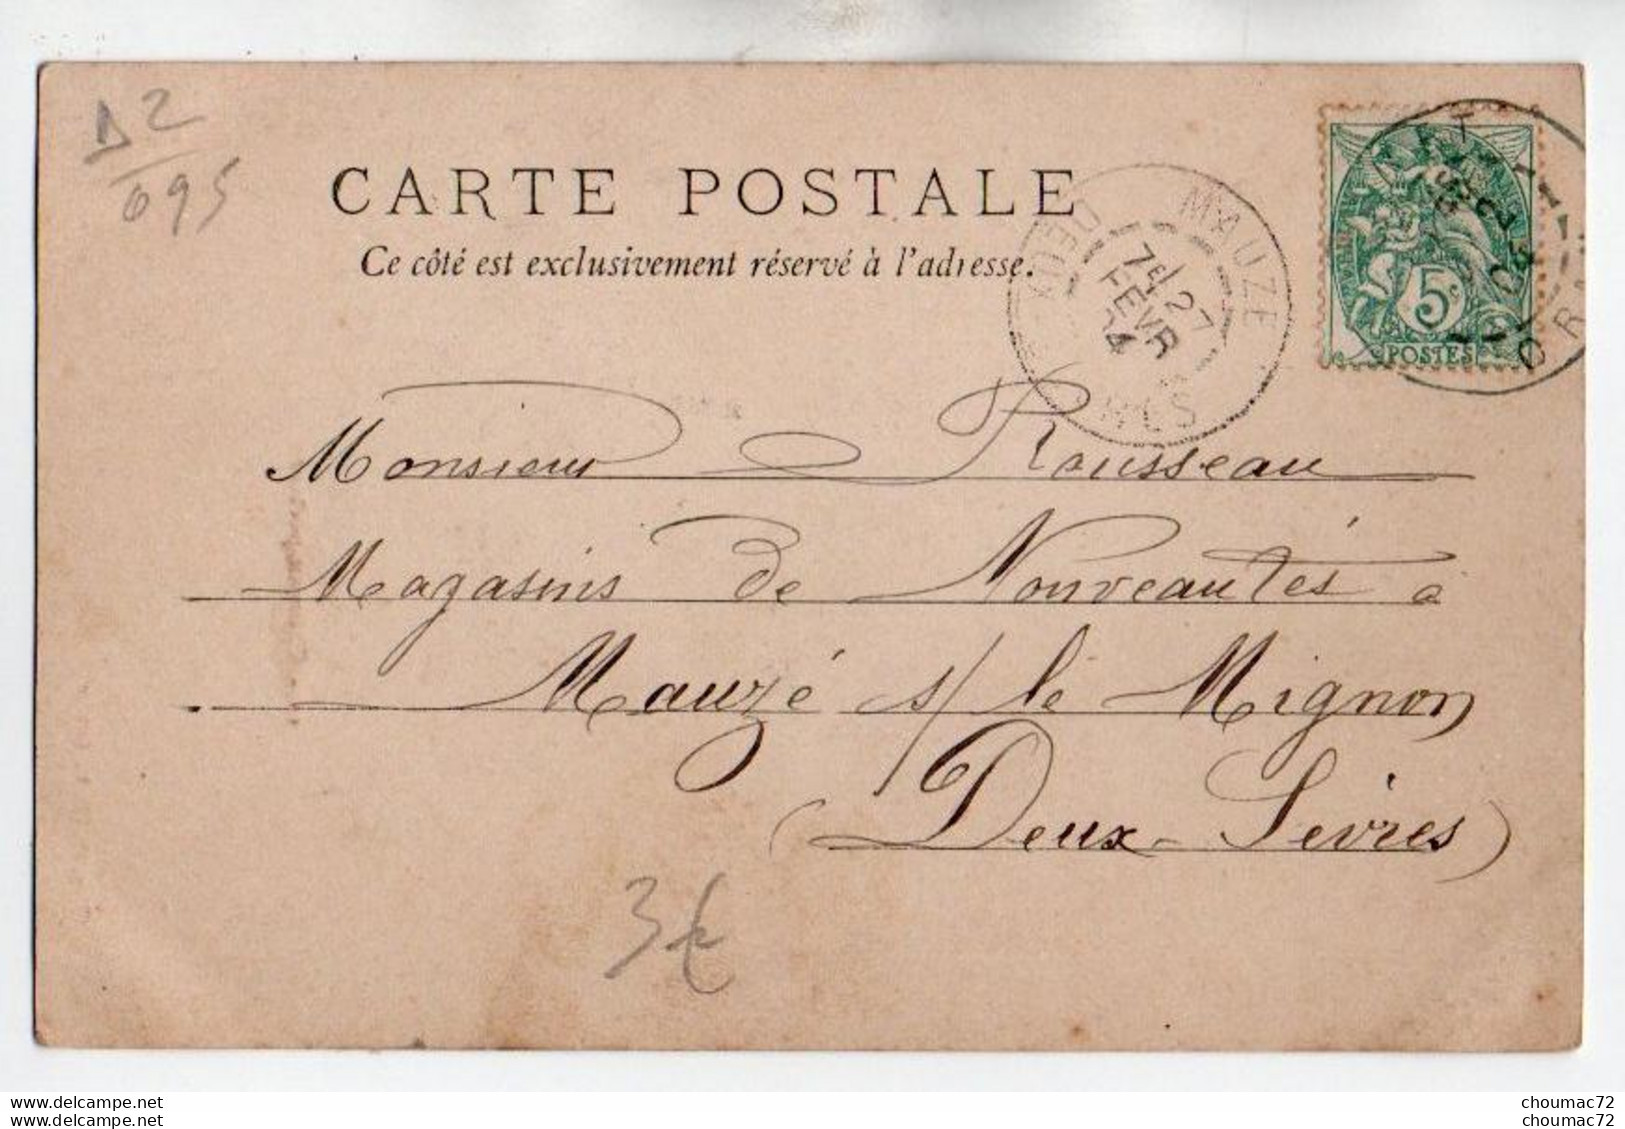 D2
695
CARTE POSTALE
Ce côté est exclusivement réservé à l'adresse.
MAUZE
DEUX
7E 27
FEVR
04
5c
POSTES
Monsieur Rousseau
Magasins de Nouveautés à
Mauzé s/ le Mignon
(Deux-Sèvres)
3€
www.delcampe.net
www.delcampe.net
choumac72
choumac72